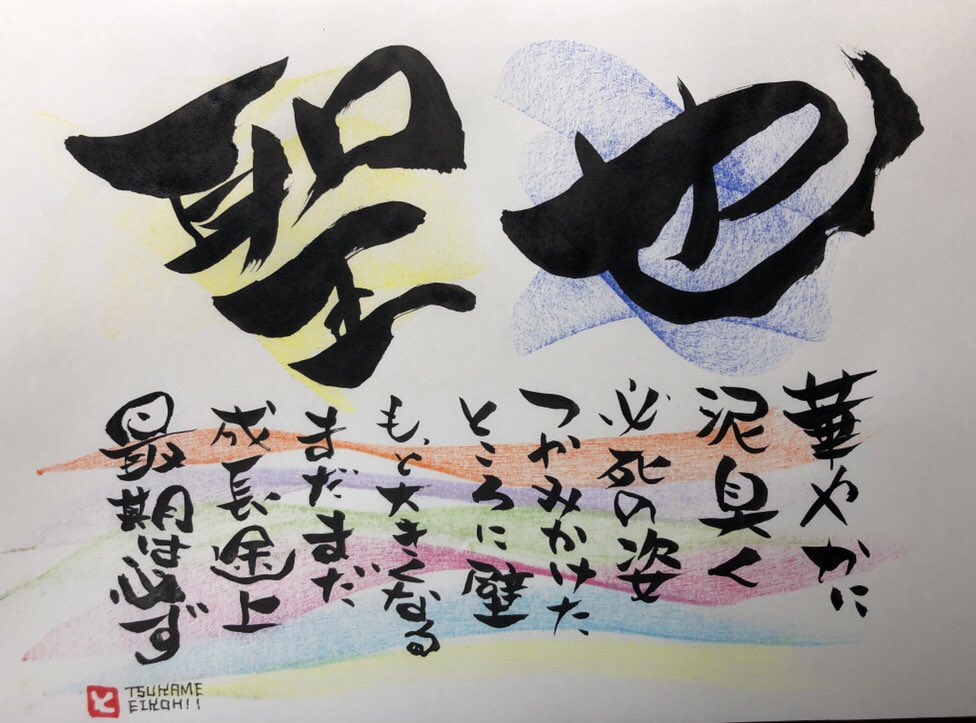 聖也
華やかに
泥臭く
必死の姿
つかみかけた
ところに壁
もっと大きくなる
まだまだ
成長途上
最期は必ず
と
TSUKAME
EIKOH!!